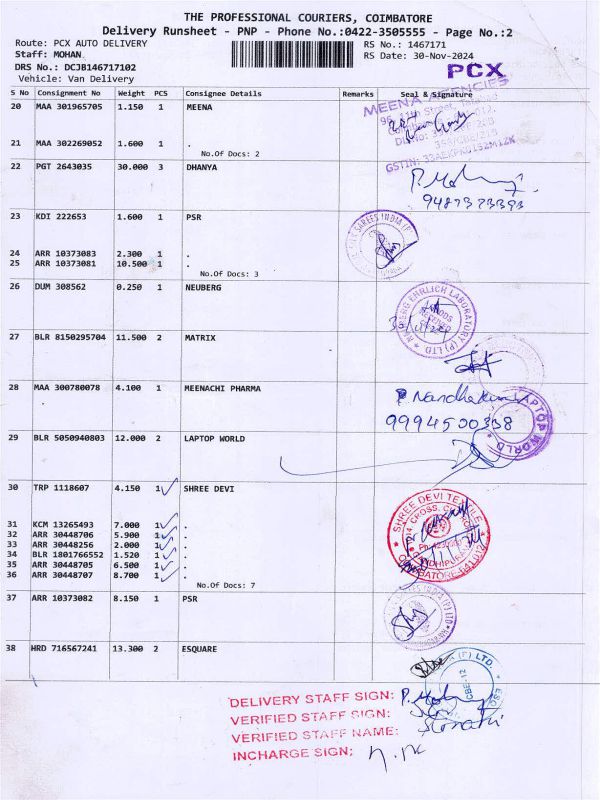 THE PROFESSIONAL COURIERS, COIMBATORE
Delivery Runsheet - PNP - Phone No.:0422-3505555 - Page No.:2
Route: PCX AUTO DELIVERY RS No.: 1467171
Staff: MOHAN. RS Date: 30-Nov-2024
DRS No.: DCJB146717102
Vehicle: Van Delivery
PCX
S No Consignment No Weight PCS Consignee Details Remarks Seal & Signature
20 MAA 301965705 1.150 1 MEENA
MEENA AGENCIES
21 MAA 302269052 1.600 1 .
No.Of Docs: 2
22 PGT 2643035 30.000 3 DHANYA
23 KDI 222653 1.600 1 PSR
24 ARR 10373083 2.300 1 .
25 ARR 10373081 10.500 1 .
No.Of Docs: 3
26 DUM 308562 0.250 1 NEUBERG
27 BLR 8150295704 11.500 2 MATRIX
28 MAA 300780078 4.100 1 MEENACHI PHARMA
9994500338
29 BLR 5050940803 12.000 2 LAPTOP WORLD
LAPTOP WORLD
30 TRP 1118607 4.150 1 SHREE DEVI
SHREE DEVI TEXTILE
31 KCM 13265493 7.000 1 .
32 ARR 30448706 5.900 1 .
33 ARR 30448256 2.000 1 .
34 BLR 1801766552 1.520 1 .
35 ARR 30448705 6.500 1 .
36 ARR 30448707 8.700 1 .
No.Of Docs: 7
37 ARR 10373082 8.150 1 PSR
38 HRD 716567241 13.300 2 ESQUARE
DELIVERY STAFF SIGN:
VERIFIED STAFF SIGN:
VERIFIED STAFF NAME:
INCHARGE SIGN: